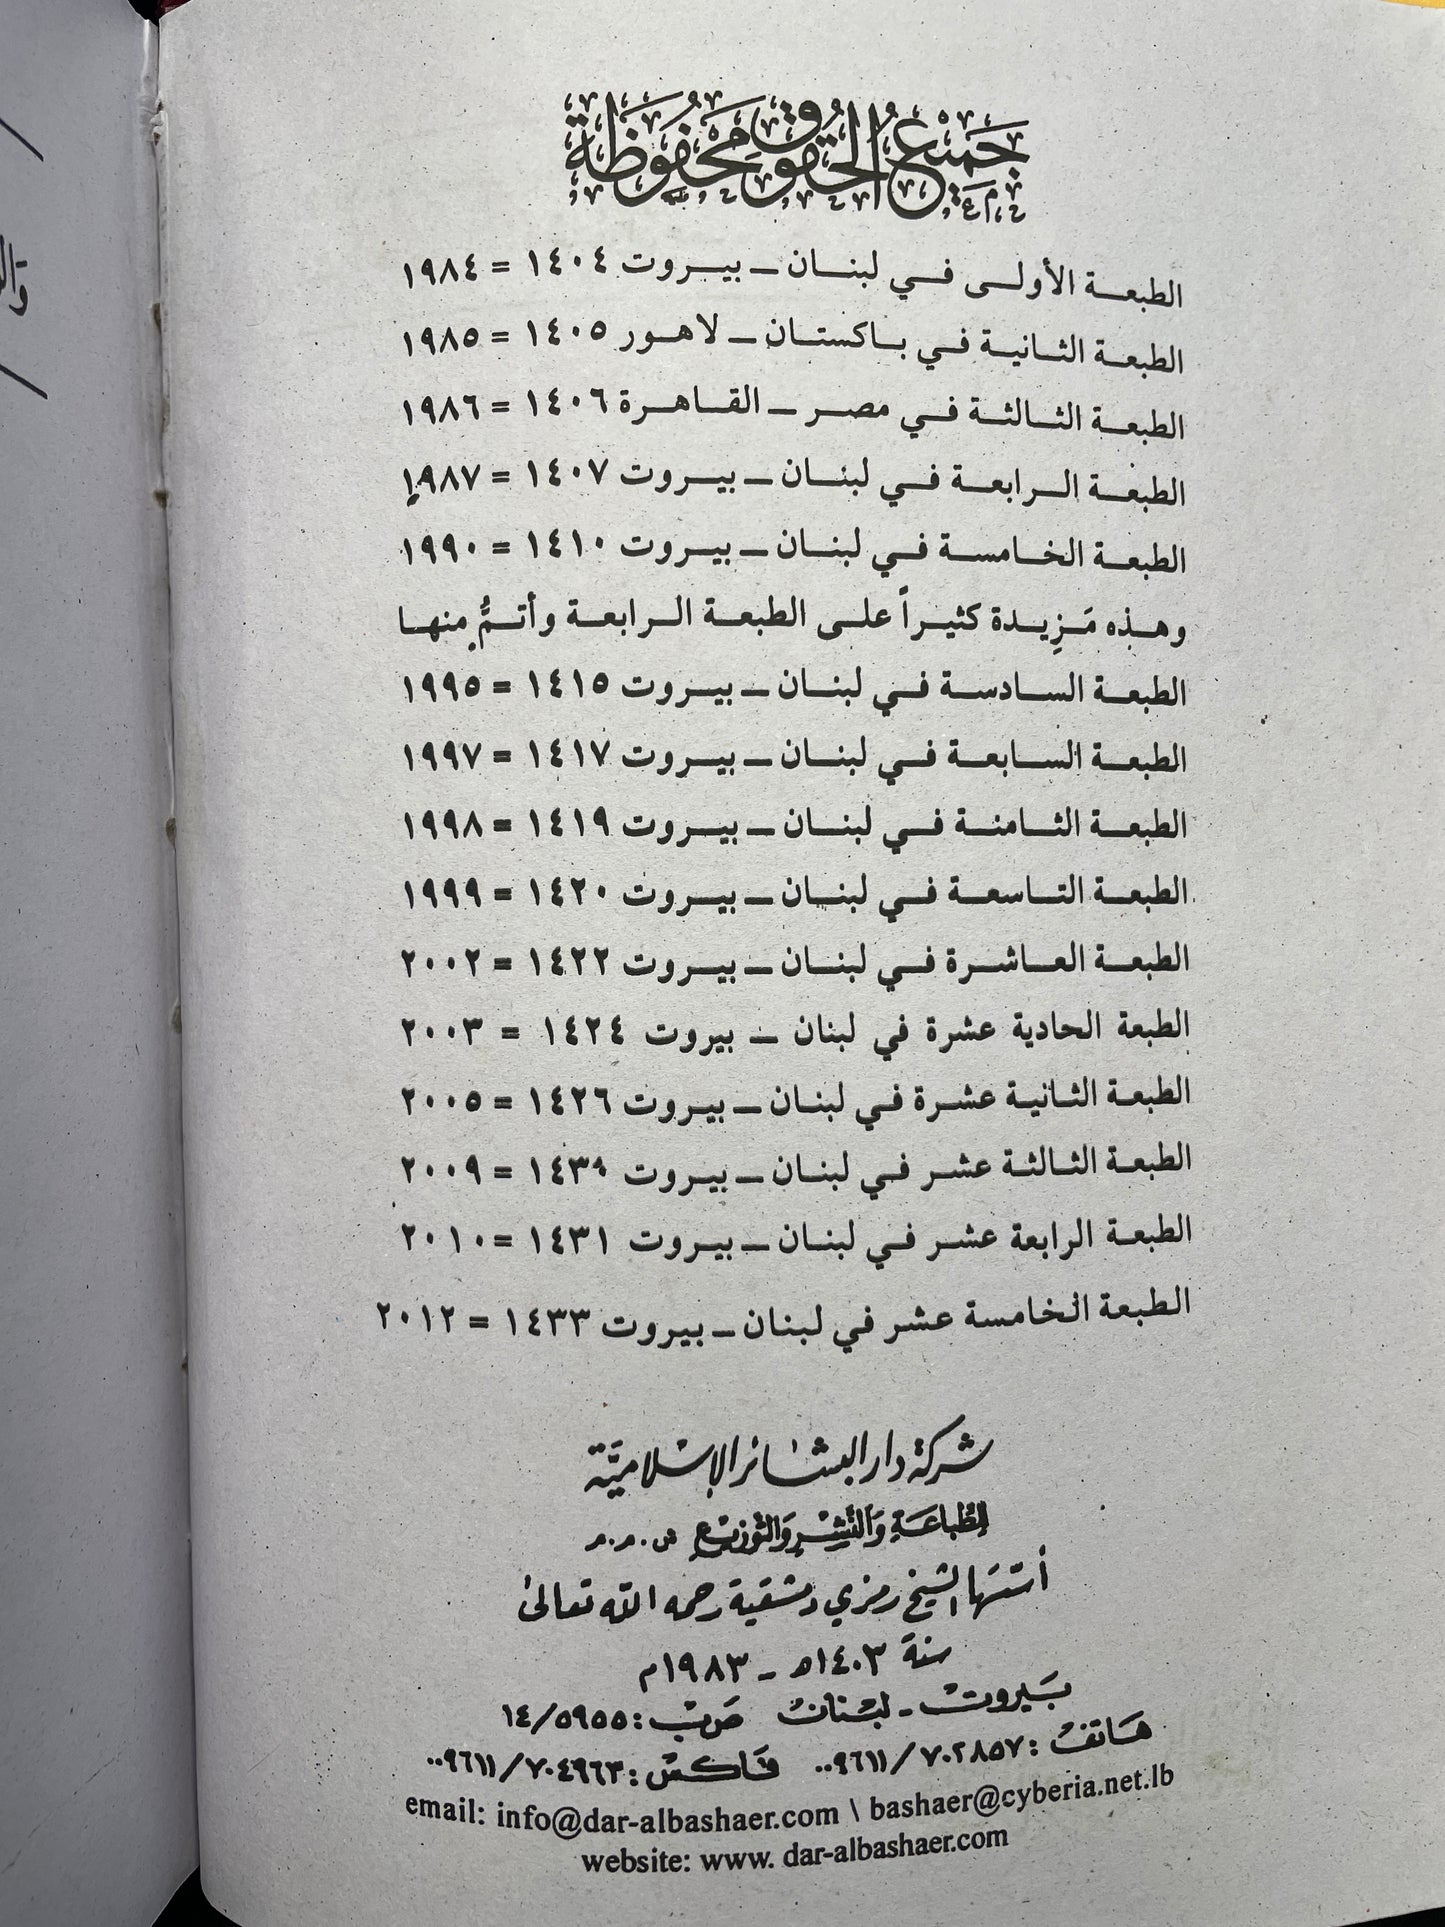 جَمِيْعُ الحُقُوقِ مَحْفُوظَةٌ
الطبعة الأولى في لبنان ـ بيروت ١٤٠٤ = ١٩٨٤
الطبعة الثانية في باكستان ـ لاهور ١٤٠٥ = ١٩٨٥
الطبعة الثالثة في مصر ـ القاهرة ١٤٠٦ = ١٩٨٦
الطبعة الرابعة في لبنان ـ بيروت ١٤٠٧ = ١٩٨٧
الطبعة الخامسة في لبنان ـ بيروت ١٤١٠ = ١٩٩٠
وهذه مَزِيدة كثيراً على الطبعة الرابعة وأتمُّ منها
الطبعة السادسة في لبنان ـ بيروت ١٤١٥ = ١٩٩٥
الطبعة السابعة في لبنان ـ بيروت ١٤١٧ = ١٩٩٧
الطبعة الثامنة في لبنان ـ بيروت ١٤١٩ = ١٩٩٨
الطبعة التاسعة في لبنان ـ بيروت ١٤٢٠ = ١٩٩٩
الطبعة العاشرة في لبنان ـ بيروت ١٤٢٢ = ٢٠٠٢
الطبعة الحادية عشرة في لبنان ـ بيروت ١٤٢٤ = ٢٠٠٣
الطبعة الثانية عشرة في لبنان ـ بيروت ١٤٢٦ = ٢٠٠٥
الطبعة الثالثة عشر في لبنان ـ بيروت ١٤٣٠ = ٢٠٠٩
الطبعة الرابعة عشر في لبنان ـ بيروت ١٤٣١ = ٢٠١٠
الطبعة الخامسة عشر في لبنان ـ بيروت ١٤٣٣ = ٢٠١٢
شركة دار البشائر الإسلاميَّة
للطباعة والنشر والتوزيع ش.م.م
أسّسَها الشيخ رمزي دمشقية رحمه الله تعالى
سنة ١٤٠٣هـ ـ ١٩٨٣م
بيروت ـ لبنان ص.ب: ١٤/٥٩٥٥
هاتف: ٠٠٩٦١١/٧٠٢٨٥٧ فاكس: ٠٠٩٦١١/٧٠٤٩٦٣
email: info@dar-albashaer.com \ bashaer@cyberia.net.lb
website: www. dar-albashaer.com